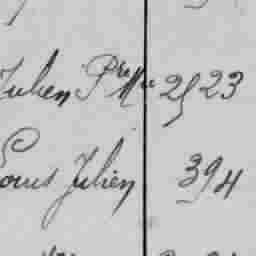 Julien Pre Mie 2523
Louis Julien 394